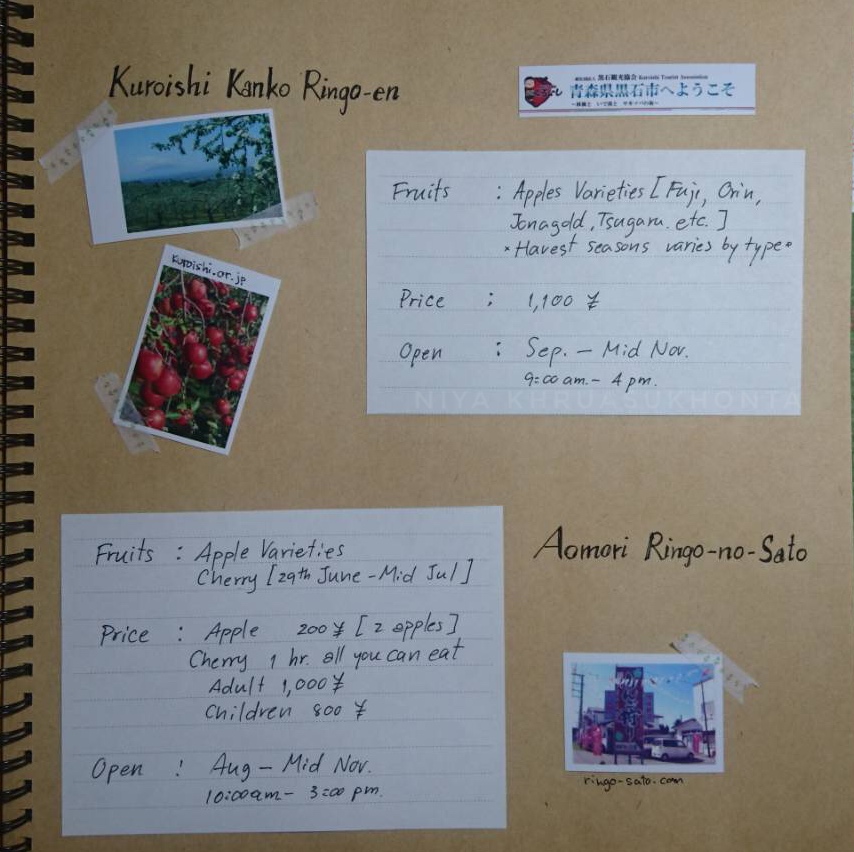 Kuroishi Kanko Ringo-en
黒石観光協会 Kuroishi Tourist Association
青森県黒石市へようこそ
kuroishi.or.jp
Fruits : Apples Varieties [Fuji, Orin,
Jonagold, Tsugaru. etc.]
*Havest seasons varies by type*
Price : 1,100 ¥
Open : Sep. - Mid Nov.
9:00 am. - 4 pm.
NIYA KHRUASUKHONTA
Fruits : Apple Varieties
Cherry [29th June - Mid Jul]
Price : Apple 200 ¥ [2 apples]
Cherry 1 hr. all you can eat
Adult 1,000 ¥
Children 800 ¥
Open : Aug - Mid Nov.
10:00am - 3:00 pm.
Aomori Ringo-no-Sato
ringo-sato.com